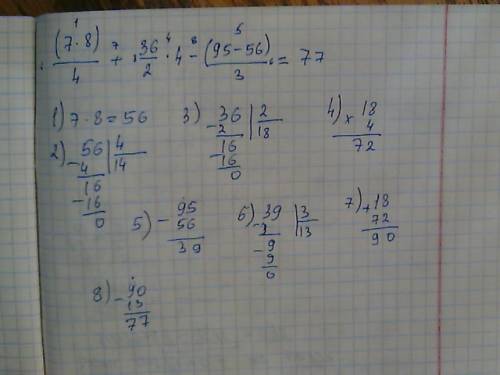 1 5
(7·8)/4 + 7 36/2 4 · 4 - 8 (95-56)/3 = 77
1) 7·8=56
2) 56 | 4
4 | 14
16
-16
0
3) 36 | 2
-2 | 18
16
-16
0
4) 18
× 4
72
5) - 95
56
39
6) 39 | 3
-3 | 13
-9
9
0
7) 18
+ 72
90
8) - 90
13
77